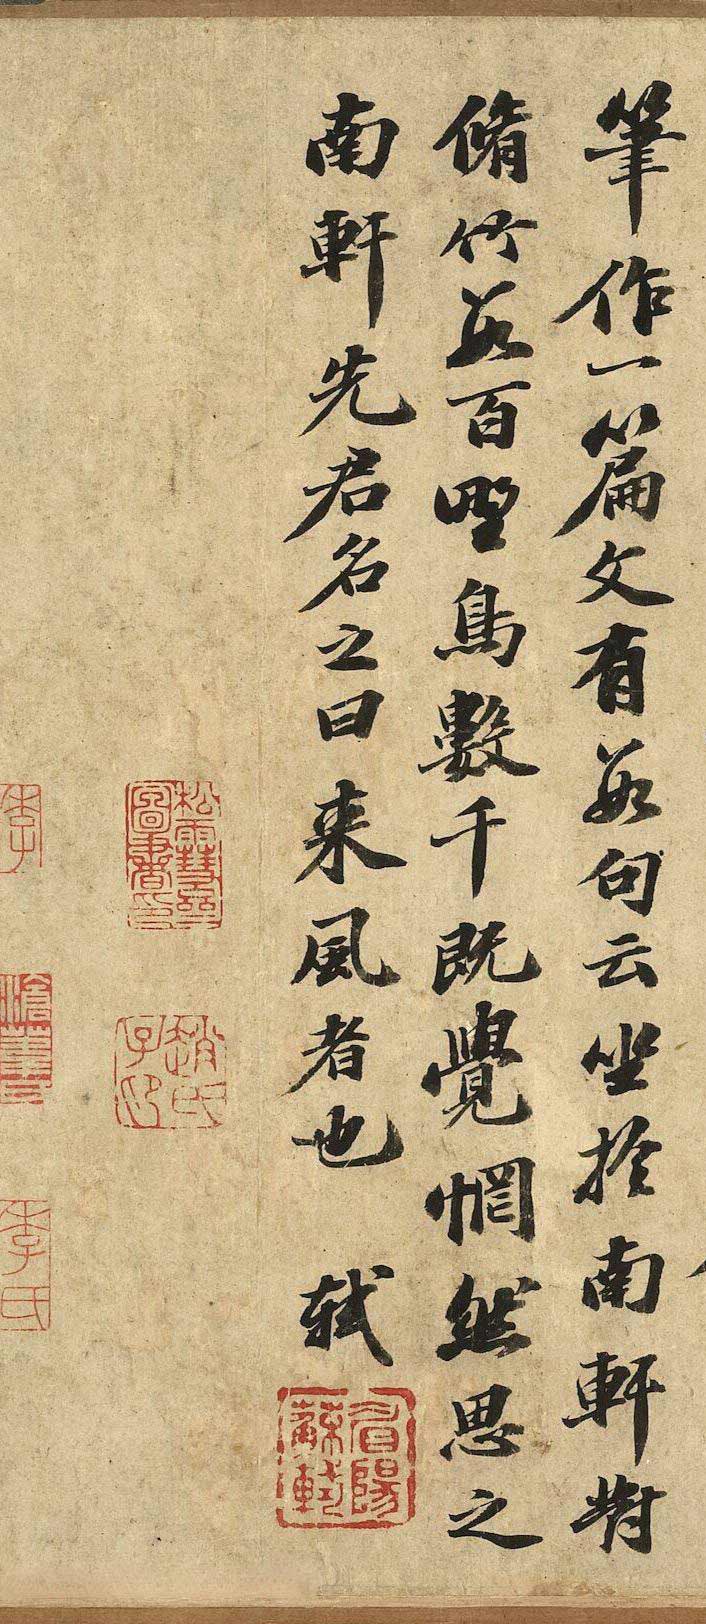 筆作一篇文有数句云坐於南軒對
脩竹数百野鳥數千既覺惘然思之
南軒先君名之曰来風者也 軾
眉陽蘇軾
松雪齋圖書印
趙氏子昂
李
李氏